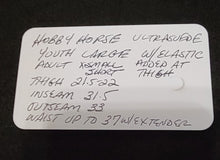 HOBBY HORSE ULTRASUEDE
YOUTH LARGE W/ELASTIC
ADULT XSMALL ADDED AT
SHORT THIGH
THIGH 21.5-22
INSEAM 31.5
OUTSEAM 33
WAIST UP TO 37 W/EXTENDER